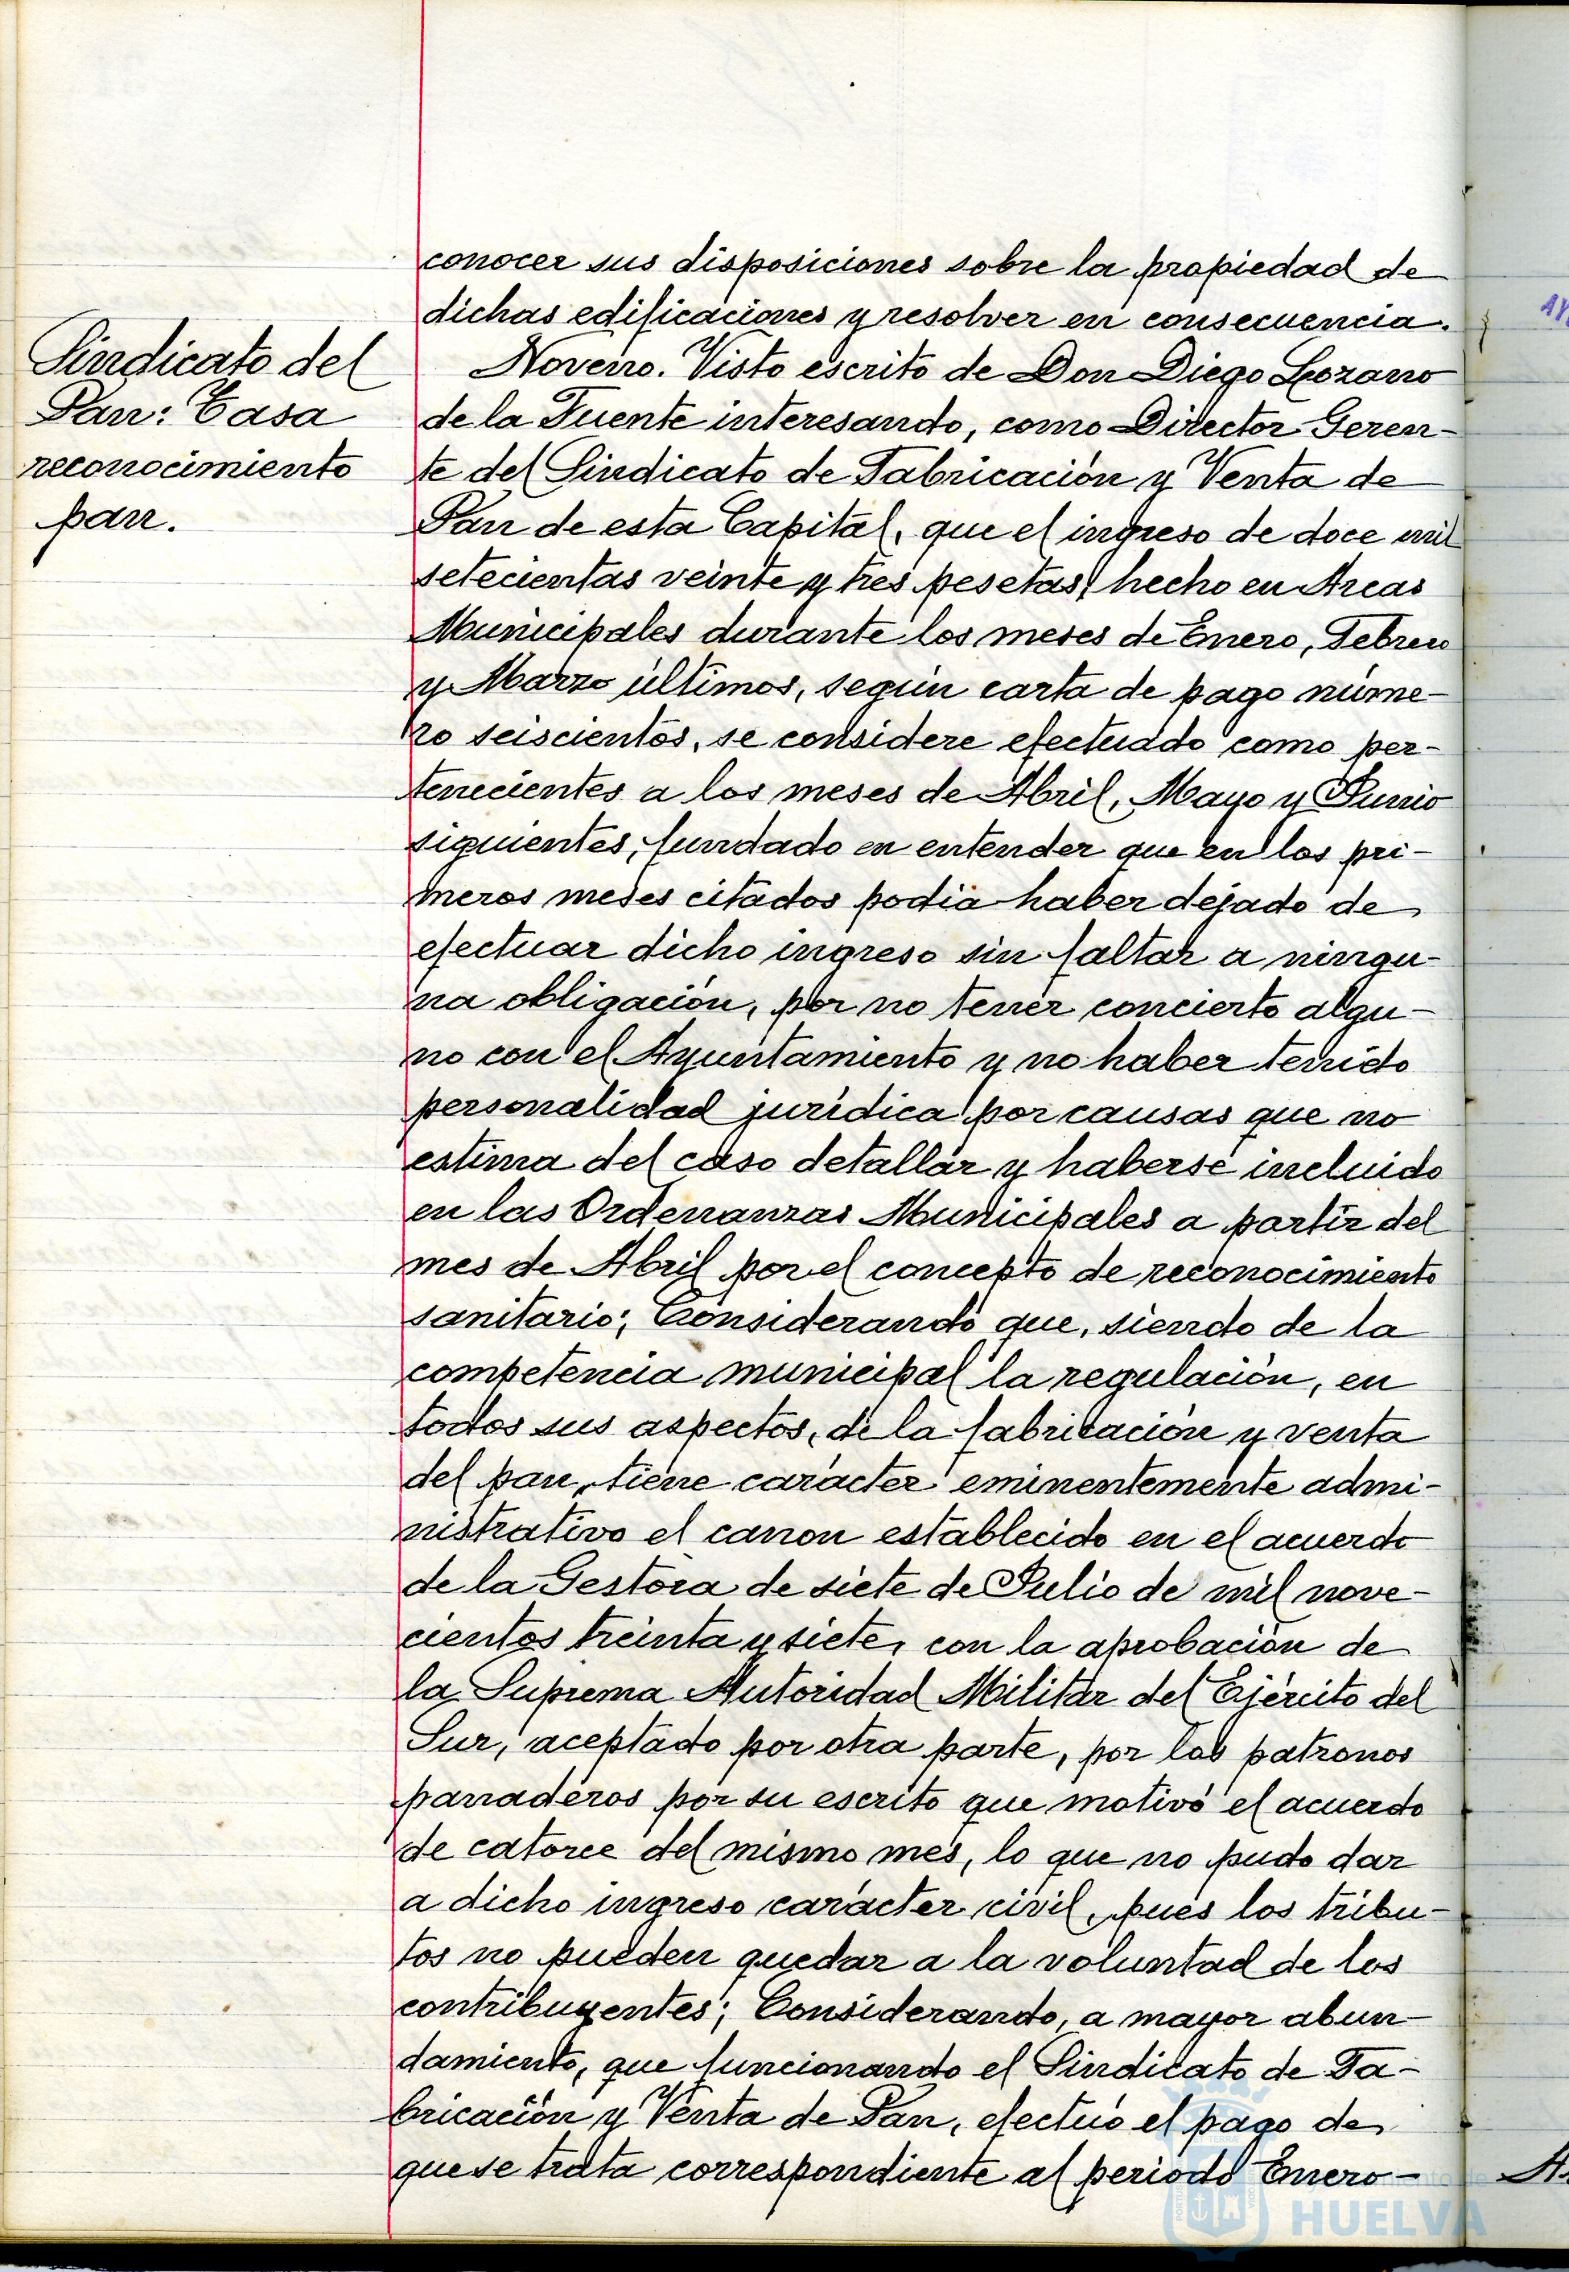 Sindicato del
Pan: Tasa
reconocimiento
pan.
conocer sus disposiciones sobre la propiedad de
dichas edificaciones y resolver en consecuencia.
Noveno. Visto escrito de Don Diego Lozano
de la Fuente interesando, como Director Geren-
te del Sindicato de Fabricación y Venta de
Pan de esta Capital, que el ingreso de doce mil
setecientas veinte y tres pesetas, hecho en Arcas
Municipales durante los meses de Enero, Febrero
y Marzo últimos, según carta de pago núme-
ro seiscientos, se considere efectuado como per-
tenecientes a los meses de Abril, Mayo y Junio
siguientes, fundado en entender que en los pri-
meros meses citados podia haber dejado de
efectuar dicho ingreso sin faltar a ningu-
na obligación, por no tener concierto algu-
no con el Ayuntamiento y no haber tenido
personalidad jurídica por causas que no
estima del caso detallar y haberse incluido
en las Ordenanzas Municipales a partir del
mes de Abril por el concepto de reconocimiento
sanitario; Considerando que, siendo de la
competencia municipal la regulación, en
todos sus aspectos, de la fabricación y venta
del pan, tiene carácter eminentemente admi-
nistrativo el canon establecido en el acuerdo
de la Gestora de siete de Julio de mil nove-
cientos treinta y siete, con la aprobación de
la Suprema Autoridad Militar del Ejército del
Sur, aceptado por otra parte, por los patronos
panaderos por su escrito que motivó el acuerdo
de catorce del mismo mes, lo que no pudo dar
a dicho ingreso carácter civil, pues los tribu-
tos no pueden quedar a la voluntad de los
contribuyentes; Considerando, a mayor abun-
damiento, que funcionando el Sindicato de Fa-
bricación y Venta de Pan, efectuó el pago de
que se trata correspondiente al periodo Enero-
HUELVA